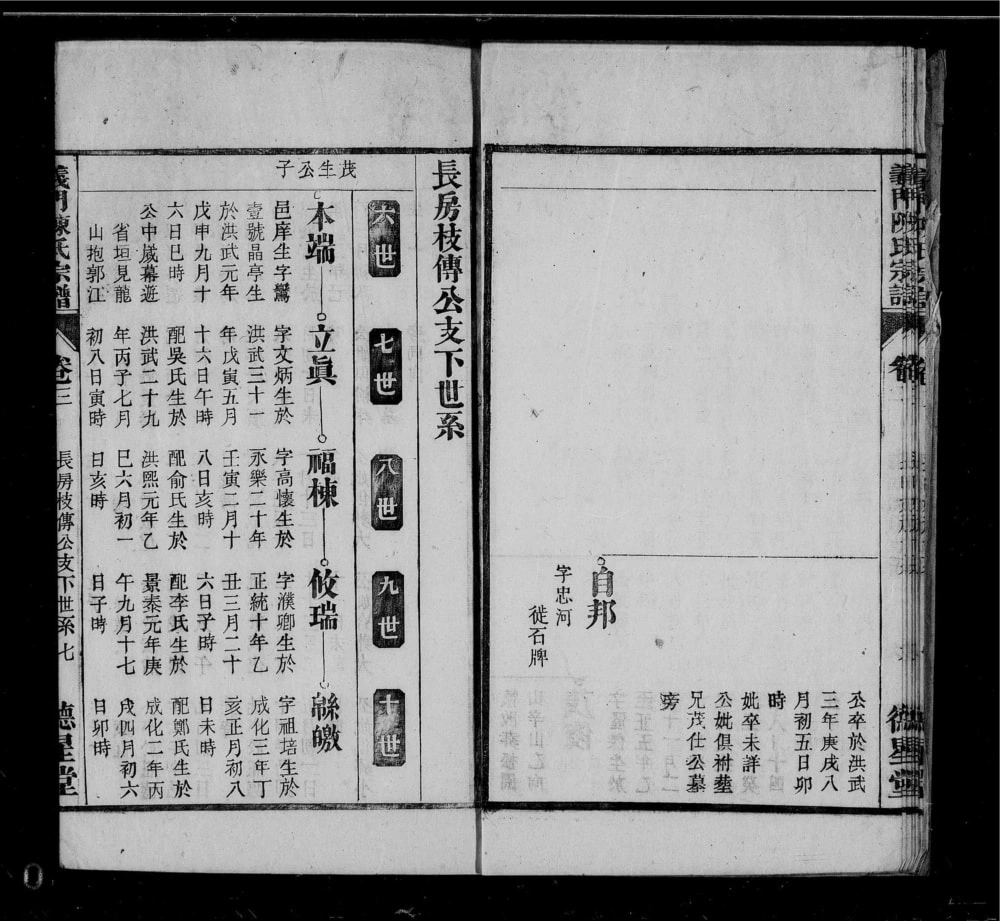 公卒於洪武
三年庚戌八
月初五日卯
時
妣卒未詳
公妣俱祔塟
兄茂仕公墓
旁
自邦
字忠河
徙石牌
長房枝傳公支下世系
六世
七世
八世
九世
十世
茂生公子
本端
邑庠生字鸞
壹號晶亭生
於洪武元年
戊申九月十
六日巳時
公中歲幕遊
省垣見龍
山抱郭江
立眞
字文炳生於
洪武三十一
年戊寅五月
十六日午時
配吳氏生於
洪武二十九
年丙子七月
初八日寅時
福棟
字高懷生於
永樂二十年
壬寅二月十
八日亥時
配俞氏生於
洪熙元年乙
巳六月初一
日亥時
攸瑞
字濮卿生於
正統十年乙
丑三月二十
六日子時
配李氏生於
景泰元年庚
午九月十七
日子時
緜皦
字祖培生於
成化三年丁
亥正月初八
日未時
配鄭氏生於
成化二年丙
戌四月初六
日卯時
義門陳氏宗譜
卷三
長房枝傳公支下世系
七
德星堂